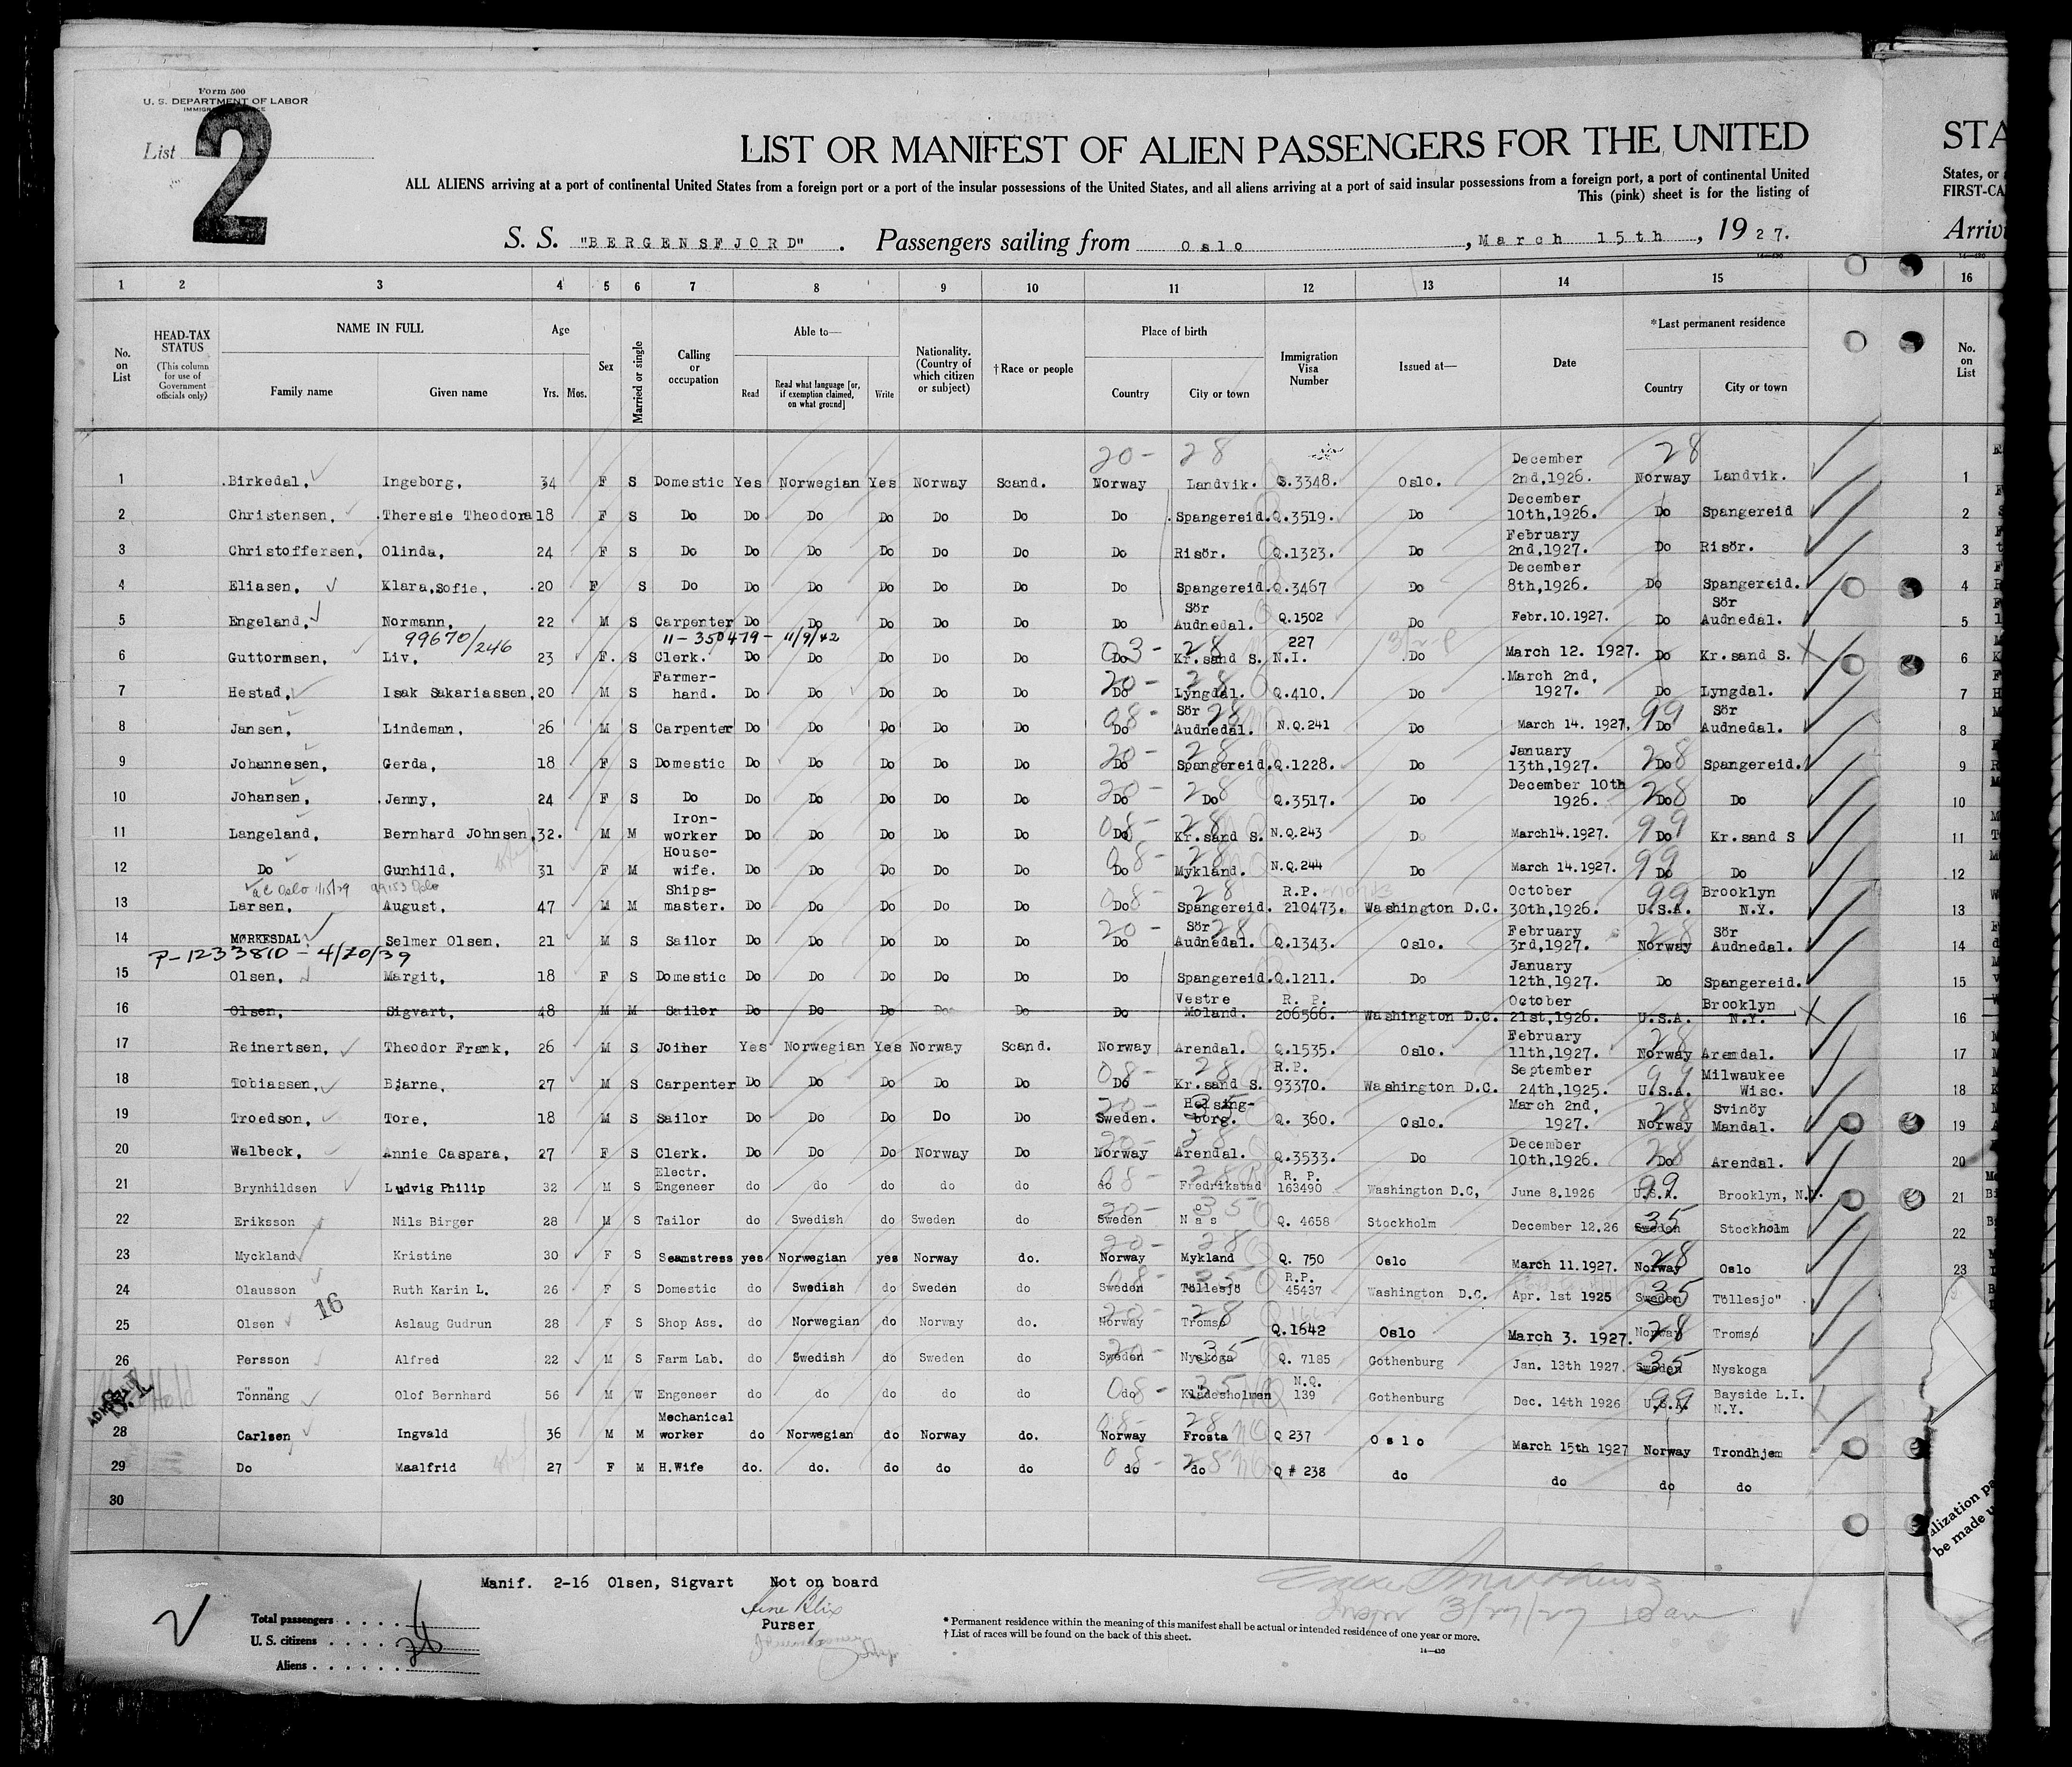 Form 500
U. S. DEPARTMENT OF LABOR
List 2
LIST OR MANIFEST OF ALIEN PASSENGERS FOR THE UNITED
STA
ALL ALIENS arriving at a port of continental United States from a foreign port or a port of the insular possessions of the United States, and all aliens arriving at a port of said insular possessions from a foreign port, a port of continental United
States, or
This (pink) sheet is for the listing of
FIRST-CA
S. S. "BERGENSFJORD". Passengers sailing from Oslo, March 15th, 1927.
Arriv
1 2 3 4 5 6 7 8 9 10 11 12 13 14 15 16
No. on List
HEAD-TAX STATUS (This column for use of Government officials only)
NAME IN FULL Family name Given name
Age Yrs. Mos.
Sex
Married or single
Calling or occupation
Able to— Read Read what language [or, if exemption claimed, on what ground] Write
Nationality. (Country of which citizen or subject)
†Race or people
Place of birth Country City or town
Immigration Visa Number
Issued at—
Date
*Last permanent residence Country City or town
No. on List
20- 28 28
1 Birkedal, Ingeborg, 34 F S Domestic Yes Norwegian Yes Norway Scand. Norway Landvik. Q.3348. Oslo. December 2nd,1926. Norway Landvik. 1
2 Christensen, Theresie Theodora 18 F S Do Do Do Do Do Do Do Spangereid. Q.3519. Do December 10th,1926. Do Spangereid 2
3 Christoffersen, Olinda, 24 F S Do Do Do Do Do Do Do Risör. Q.1323. Do February 2nd,1927. Do Risör. 3
4 Eliasen, Klara,Sofie, 20 F S Do Do Do Do Do Do Do Spangereid. Q.3467 Do December 8th,1926. Do Spangereid. 4
5 Engeland, Normann, 22 M S Carpenter Do Do Do Do Do Do Sör Audnedal. Q.1502 Do Febr.10.1927. Do Sör Audnedal. 5
99670/246 11-350479- 11/9/42
6 Guttormsen, Liv, 23 F. S Clerk. Do Do Do Do Do Do Kr.sand S. 227 N.I. Do March 12. 1927. Do Kr.sand S. 6
7 Hestad, Isak Sakariassen, 20 M S Farmer-hand. Do Do Do Do Do Do Lyngdal. Q.410. Do March 2nd, 1927. Do Lyngdal. 7
8 Jansen, Lindeman, 26 M S Carpenter Do Do Do Do Do Do Sör Audnedal. N.Q.241 Do March 14. 1927, Do Sör Audnedal. 8
9 Johannesen, Gerda, 18 F S Domestic Do Do Do Do Do Do Spangereid. Q.1228. Do January 13th,1927. Do Spangereid. 9
10 Johansen, Jenny, 24 F S Do Do Do Do Do Do Do Do Q.3517. Do December 10th 1926. Do Do 10
11 Langeland, Bernhard Johnsen, 32. M M Iron-worker Do Do Do Do Do Do Kr.sand S. N.Q.243 Do March14.1927. Do Kr.sand S 11
12 Do Gunhild, 31 F M House-wife. Do Do Do Do Do Do Mykland. N.Q.244 Do March 14.1927. Do Do 12
13 Larsen, August, 47 M M Ships-master. Do Do Do Do Do Do Spangereid. R.P. 210473. Washington D.C. October 30th,1926. U.S.A. Brooklyn N.Y. 13
14 MØRKESDAL Selmer Olsen, 21 M S Sailor Do Do Do Do Do Do Sör Audnedal. Q.1343. Oslo. February 3rd,1927. Norway Sör Audnedal. 14
P-1233810 - 4/20/39
15 Olsen, Margit, 18 F S Domestic Do Do Do Do Do Do Spangereid. Q.1211. Do January 12th,1927. Do Spangereid. 15
16 Olsen, Sigvart, 48 M M Sailor Do Do Do Do Do Do Vestre Moland. R. P. 206566. Washington D.C. October 21st,1926. U.S.A. Brooklyn N.Y. 16
17 Reinertsen, Theodor Frank, 26 M S Joiner Yes Norwegian Yes Norway Scand. Norway Arendal. Q.1535. Oslo. February 11th,1927. Norway Arendal. 17
18 Tobiassen, Bjarne, 27 M S Carpenter Do Do Do Do Do Do Kr.sand S. R.P. 93370. Washington D.C. September 24th,1925. U.S.A. Milwaukee Wisc. 18
19 Troedson, Tore, 18 M S Sailor Do Do Do Do Do Sweden. Helsing-borg. Q. 360. Oslo. March 2nd, 1927. Norway Svinöy Mandal. 19
20 Walbeck, Annie Caspara, 27 F S Clerk. Do Do Do Norway Do Norway Arendal. Q.3533. Do December 10th,1926. Do Arendal. 20
21 Brynhildsen Ludvig Philip 32 M S Electr. Engeneer do do do do do do Fredrikstad R. P. 163490 Washington D.C, June 8.1926 U.S.A. Brooklyn, N.Y. 21
22 Eriksson Nils Birger 28 M S Tailor do Swedish do Sweden do Sweden Nås Q. 4658 Stockholm December 12.26 Sweden Stockholm 22
23 Myckland Kristine 30 F S Seamstress yes Norwegian yes Norway do. Norway Mykland Q. 750 Oslo March 11.1927. Norway Oslo 23
24 Olausson Ruth Karin L. 26 F S Domestic do Swedish do Sweden do Sweden Töllesjö R.P. 45437 Washington D.C. Apr. 1st 1925 Sweden Töllesjo"
16
25 Olsen Aslaug Gudrun 28 F S Shop Ass. do Norwegian do Norway do. Norway Tromsø Q.1642 Oslo March 3. 1927. Norway Tromsø
26 Persson Alfred 22 M S Farm Lab. do Swedish do Sweden do Sweden Nyskoga Q. 7185 Gothenburg Jan. 13th 1927. Sweden Nyskoga
Tönnäng Olof Bernhard 56 M W Engeneer do do do do do do Klädesholmen N.Q. 139 Gothenburg Dec. 14th 1926 U.S.A. Bayside L.I. N.Y.
28 Carlsen Ingvald 36 M M Mechanical worker do Norwegian do Norway do. Norway Frosta Q 237 Oslo March 15th 1927 Norway Trondhjem
29 Do Maalfrid 27 F M H.Wife do. do. do do do do do Q # 238 do do do do
30
Manif. 2-16 Olsen, Sigvart Not on board
Purser
Total passengers
U. S. citizens
Aliens
* Permanent residence within the meaning of this manifest shall be actual or intended residence of one year or more.
† List of races will be found on the back of this sheet.
14—430
3/27/27
be made